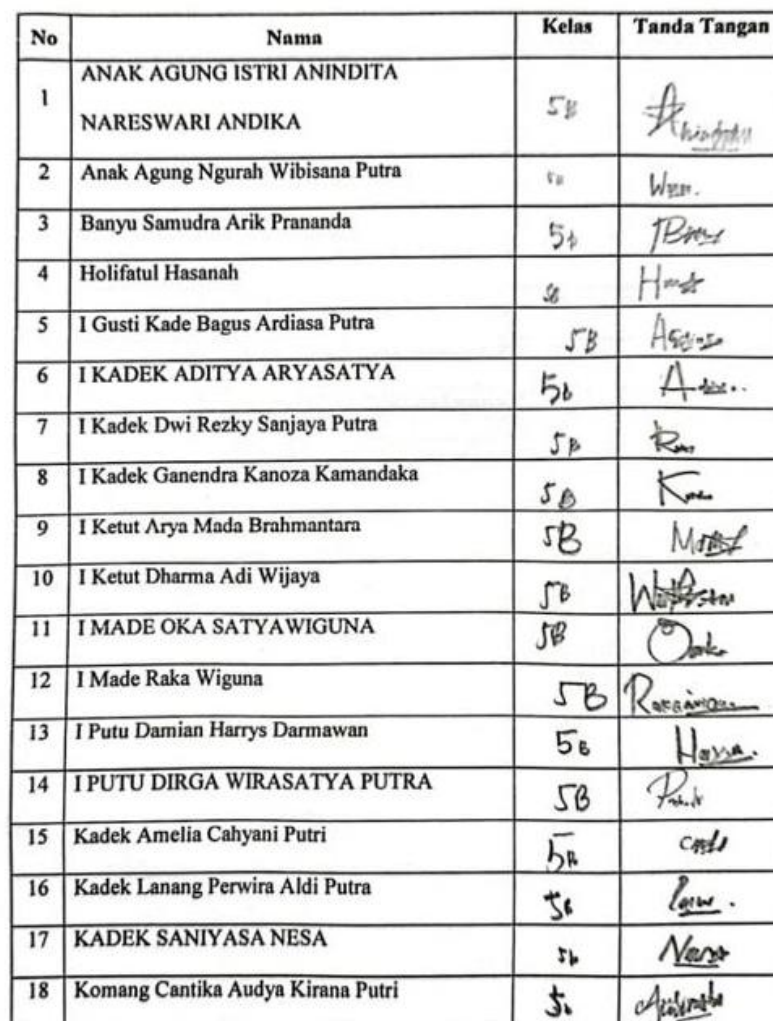 No Nama Kelas Tanda Tangan
1 ANAK AGUNG ISTRI ANINDITA
NARESWARI ANDIKA 5B
2 Anak Agung Ngurah Wibisana Putra 5B
3 Banyu Samudra Arik Prananda 5b
4 Holifatul Hasanah 5B
5 I Gusti Kade Bagus Ardiasa Putra 5B
6 I KADEK ADITYA ARYASATYA 5b
7 I Kadek Dwi Rezky Sanjaya Putra 5B
8 I Kadek Ganendra Kanoza Kamandaka 5B
9 I Ketut Arya Mada Brahmantara 5B
10 I Ketut Dharma Adi Wijaya 5B
11 I MADE OKA SATYAWIGUNA 5B
12 I Made Raka Wiguna 5B
13 I Putu Damian Harrys Darmawan 5B
14 I PUTU DIRGA WIRASATYA PUTRA 5B
15 Kadek Amelia Cahyani Putri 5B
16 Kadek Lanang Perwira Aldi Putra 5B
17 KADEK SANIYASA NESA 5b
18 Komang Cantika Audya Kirana Putri